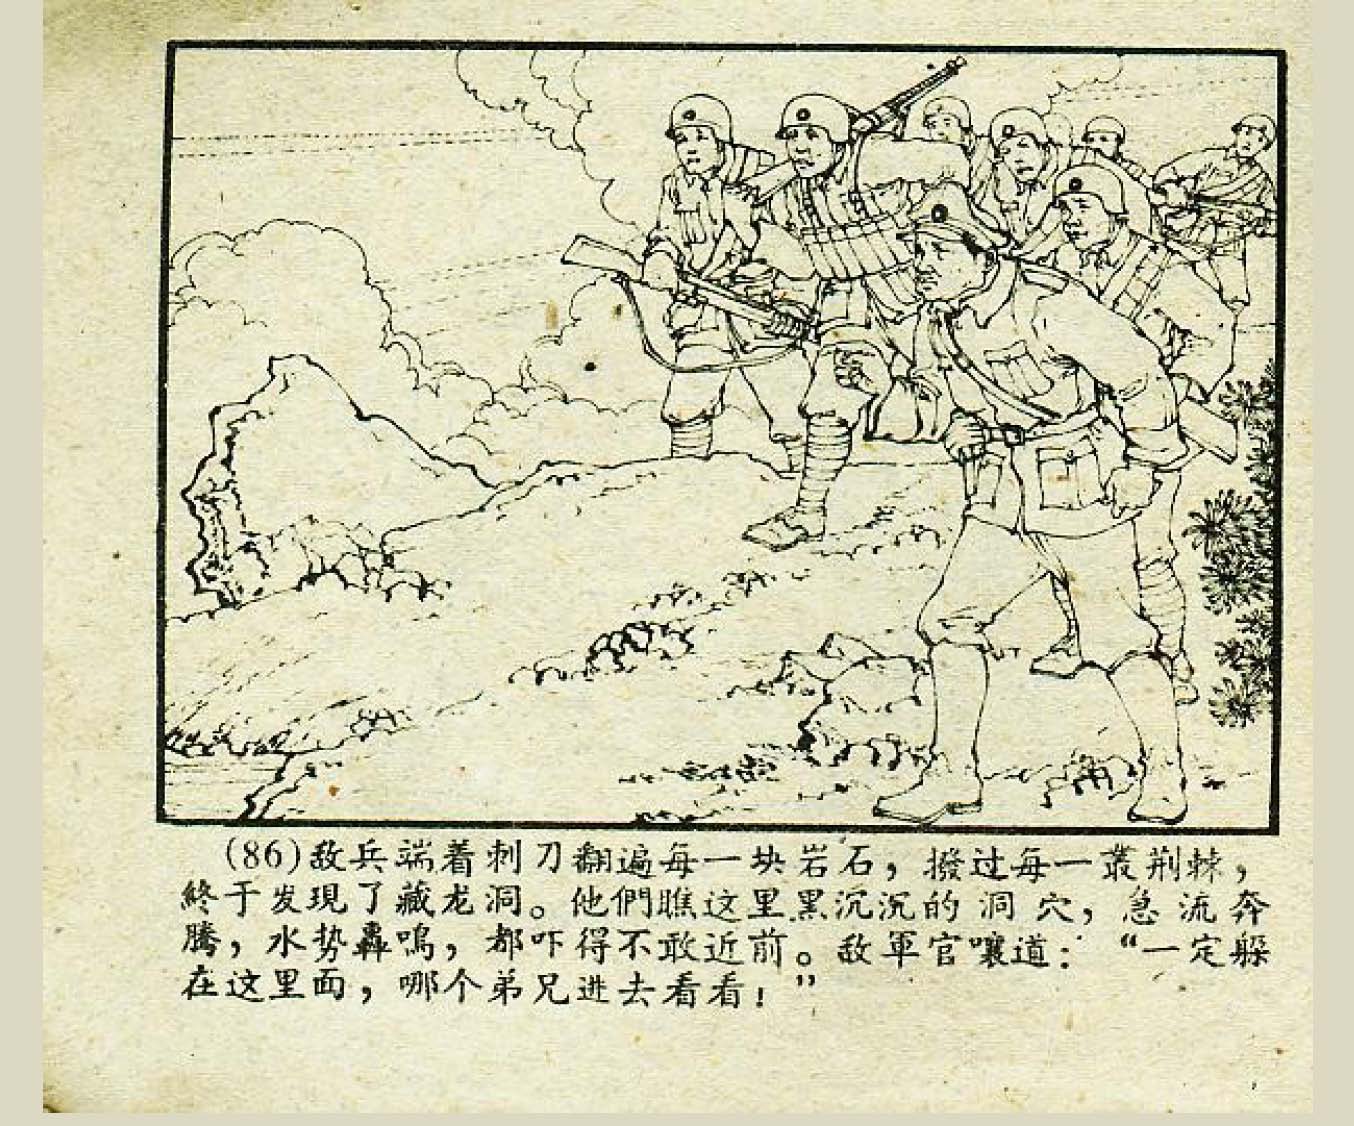 (86)敌兵端着刺刀翻遍每一块岩石，撥过每一叢荆棘，
終于发現了藏龙洞。他們瞧这里黑沉沉的洞穴，急流奔
騰，水势轟鳴，都吓得不敢近前。敌軍官嚷道：“一定躲
在这里面，哪个弟兄进去看看！”